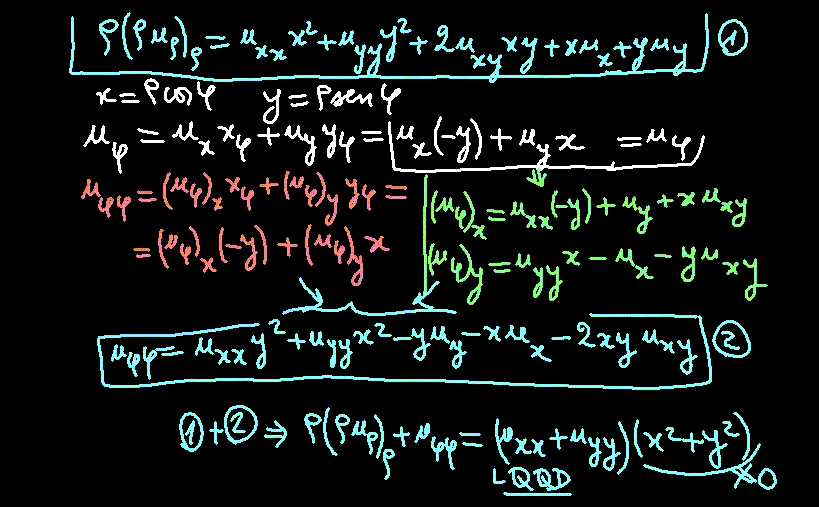 ρ(ρu_ρ)_ρ = u_xx x² + u_yy y² + 2u_xy xy + xu_x + yu_y ①
x = ρcosφ y = ρsenφ
u_φ = u_x x_φ + u_y y_φ = u_x(-y) + u_y x = u_φ
u_φφ = (u_φ)_x x_φ + (u_φ)_y y_φ =
= (u_φ)_x(-y) + (u_φ)_y x
(u_φ)_x = u_xx(-y) + u_y + x u_xy
(u_φ)_y = u_yy x - u_x - y u_xy
u_φφ = u_xx y² + u_yy x² - yu_y - xu_x - 2xy u_xy ②
① + ② ⇒ ρ(ρu_ρ)_ρ + u_φφ = (u_xx + u_yy)(x² + y²)
LQQD ≠0